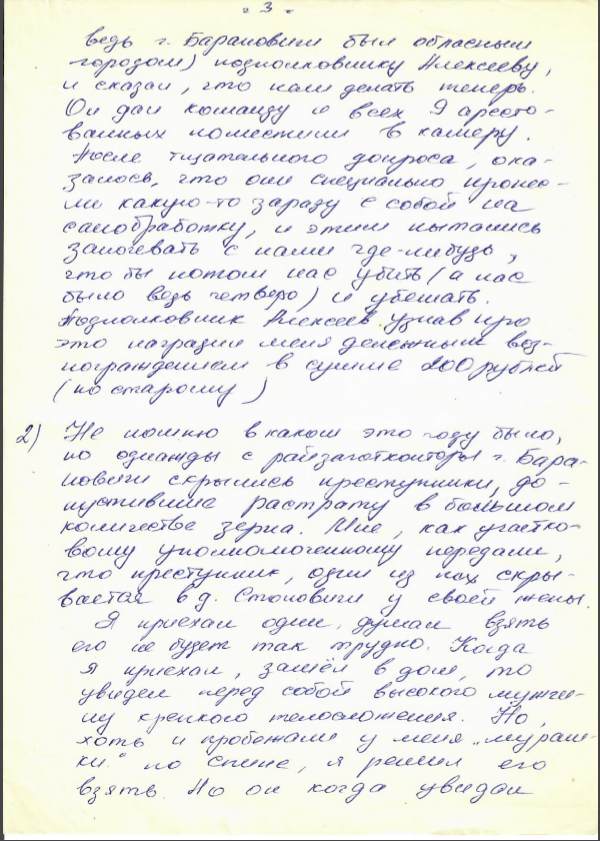 - 3 -
ведь г. Барановичи был областным
городом) подполковнику Алексееву,
и сказал, что нам делать теперь.
Он дал команду и всех 9 аресто-
ванных поместили в камеру.
После тщательного допроса, ока-
залось, что они специально пронес-
ли какую-то заразу с собой на
санобработку, и этим пытались
заночевать с нами где-нибудь,
что бы потом нас убить (а нас
было ведь четверо) и убежать.
Подполковник Алексеев узнав про
это наградил меня денежным воз-
награждением в сумме 200 рублей
(по старому)
2) Не помню в каком это году было,
но однажды с райзаготконторы г. Бара-
новичи скрылись преступники, до-
пустившие растрату в большом
количестве зерна. Мне, как участко-
вому уполномоченному передали,
что преступник, один из них скры-
вается в д. Столовичи у своей жены.
Я приехал один, думал взять
его не будет так трудно. Когда
я приехал, зашёл в дом, то
увидел перед собой высокого мужчи-
ну крепкого телосложения. Но,
хоть и пробежали у меня „мураш-
ки" по спине, я решил его
взять. Но он когда увидал